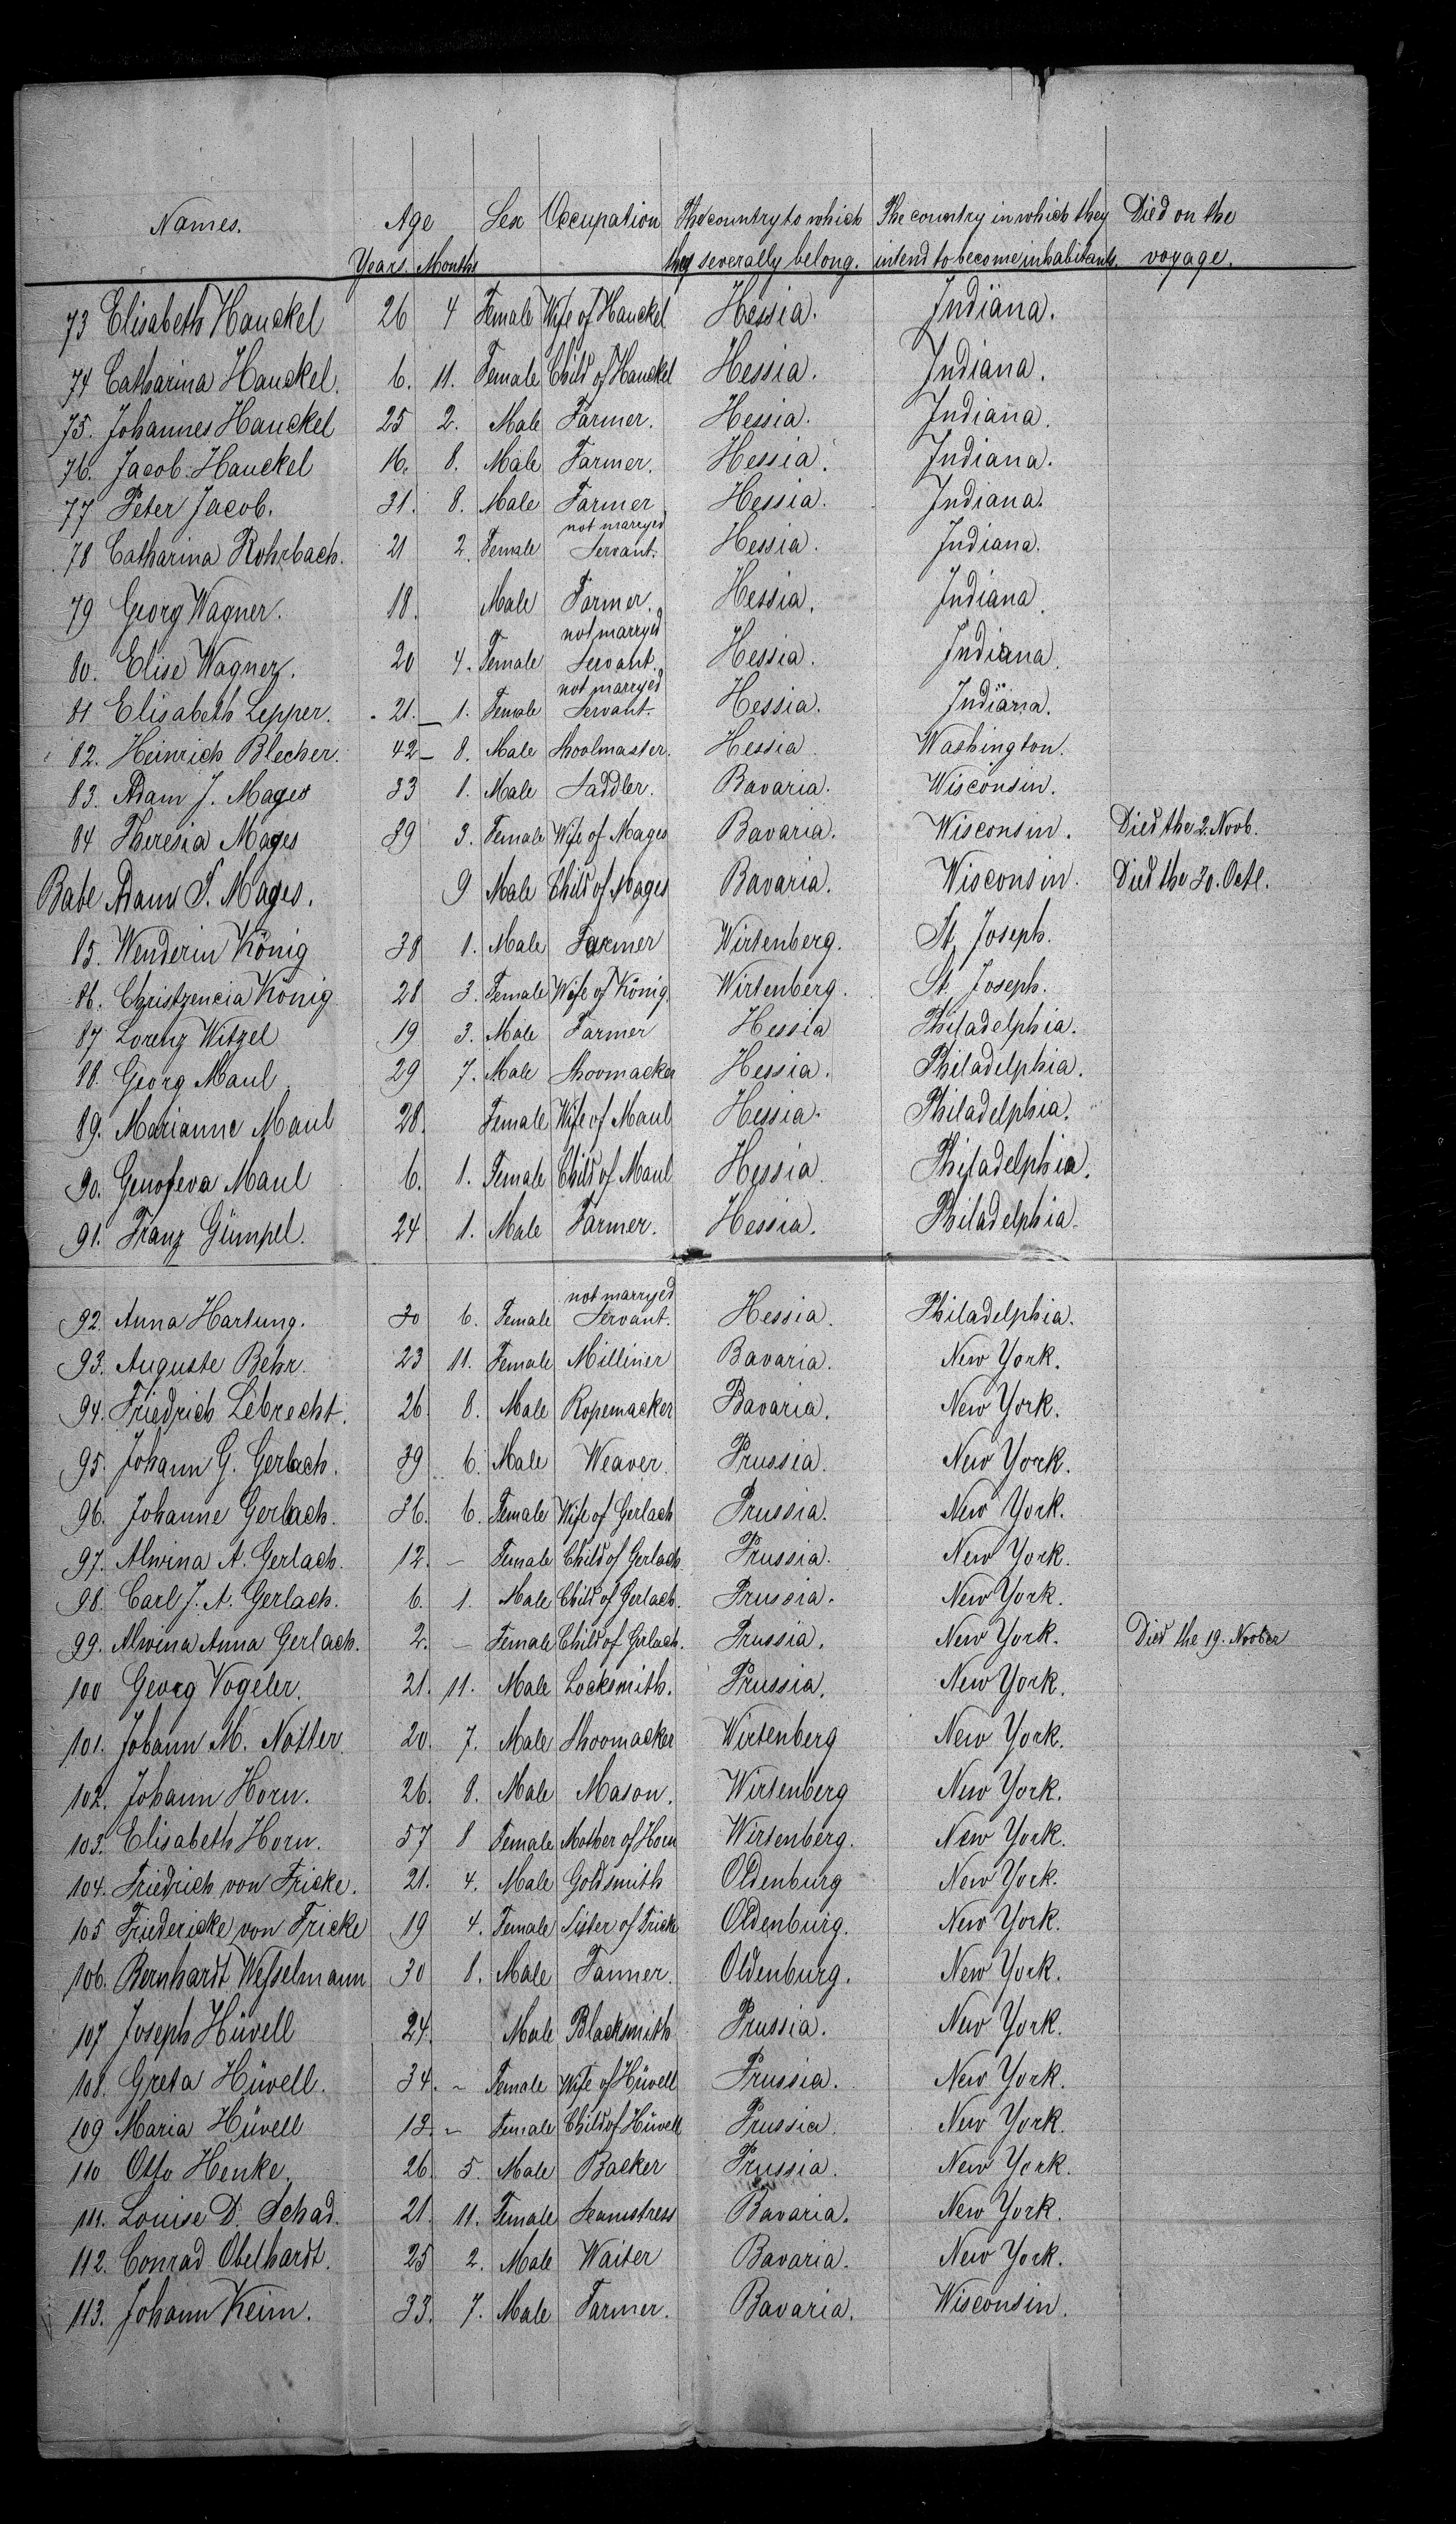 Names. Age Sex Occupation The country to which The country in which they Died on the
Years. Months they severally belong. intend to become inhabitants. voyage.
73 Elisabeth Hauckel 26 4 Female Wife of Hauckel Hessia. Indiana.
74 Catharina Hauckel. 6. 11. Female Child of Hauckel Hessia. Indiana.
75. Johannes Hauckel 25 2. Male Farmer. Hessia. Indiana.
76. Jacob Hauckel 16. 8. Male Farmer. Hessia. Indiana.
77 Peter Jacob. 31. 8. Male Farmer Hessia. Indiana.
not marryed
78 Catharina Rohrbach. 21 2. Female Servant. Hessia. Indiana.
79 Georg Wagner. 18. Male Farmer. Hessia. Indiana.
not marryed
80. Elise Wagner. 20 4. Female Servant. Hessia. Indiana.
not marryed
81 Elisabeth Lepper. 21. 1. Female Servant. Hessia. Indiana.
82. Heinrich Blecher. 42 8. Male Shoolmaster. Hessia. Washington.
83. Adam J. Mages 33 1. Male Saddler. Bavaria. Wisconsin.
84 Theresia Mages 39 3. Female Wife of Mages Bavaria. Wisconsin. Died the 2. Novb.
Babe Adam S. Mages. 9 Male Child of Mages Bavaria. Wisconsin. Died the 30. Octl.
85. Wenderin König 38 1. Male Farmer Wirtenberg. St. Joseph.
86. Christzencia König 28 3. Female Wife of König. Wirtenberg. St. Joseph.
87 Lorenz Witzel 19 3. Male Farmer Hessia Philadelphia.
88. Georg Maul 29 7. Male Shoomacker Hessia. Philadelphia.
89. Marianne Maul 28. Female Wife of Maul Hessia. Philadelphia.
90. Genofeva Maul 6. 1. Female Child of Maul Hessia. Philadelphia.
91. Franz Gümpel. 24 1. Male Farmer. Hessia. Philadelphia.
not marryed
92. Anna Hartung. 30 6. Female Servant. Hessia. Philadelphia.
93. Auguste Behr. 23 11. Female Milliner Bavaria. New York.
94. Friedrich Lebrecht. 26. 8. Male Ropemacker Bavaria. New York.
95. Johann G. Gerlach. 39 6. Male Weaver. Prussia. New York.
96. Johanne Gerlach. 36. 6. Female Wife of Gerlach Prussia. New York.
97. Alwina A. Gerlach. 12. – Female Child of Gerlach. Prussia. New York.
98. Carl J. A. Gerlach. 6. 1. Male Child of Gerlach. Prussia. New York.
99. Alwina Anna Gerlach. 2. – Female Child of Gerlach. Prussia. New York. Died the 19. November
100 Georg Vogeler. 21. 11. Male Locksmith. Prussia. New York.
101. Johann M. Notter. 20. 7. Male Shoomacker Wirtenberg New York.
102. Johann Horn. 26. 8. Male Mason. Wirtenberg New York.
103. Elisabeth Horn. 57 8 Female Mother of Horn Wirtenberg. New York.
104. Friedrich von Fricke. 21. 4. Male Goldsmith Oldenburg New York.
105 Friedericke von Fricke 19 4. Female Sister of Frick Oldenburg. New York.
106. Bernhardt Wesselmann 30 8. Male Tanner. Oldenburg. New York.
107 Joseph Hüvell 24. Male Blacksmith Prussia. New York.
108. Greta Hüvell. 34. – Female Wife of Hüvell Prussia. New York.
109 Maria Hüvell 13. – Female Child of Hüvell Prussia. New York.
110 Otto Henke. 26. 5. Male Backer Prussia. New York.
111. Louise D. Schad. 21. 11. Female Seamstress Bavaria. New York.
112. Conrad Obelhardt. 25 2. Male Waiter Bavaria. New York.
113. Johann Keim. 33. 7. Male Farmer. Bavaria. Wisconsin.